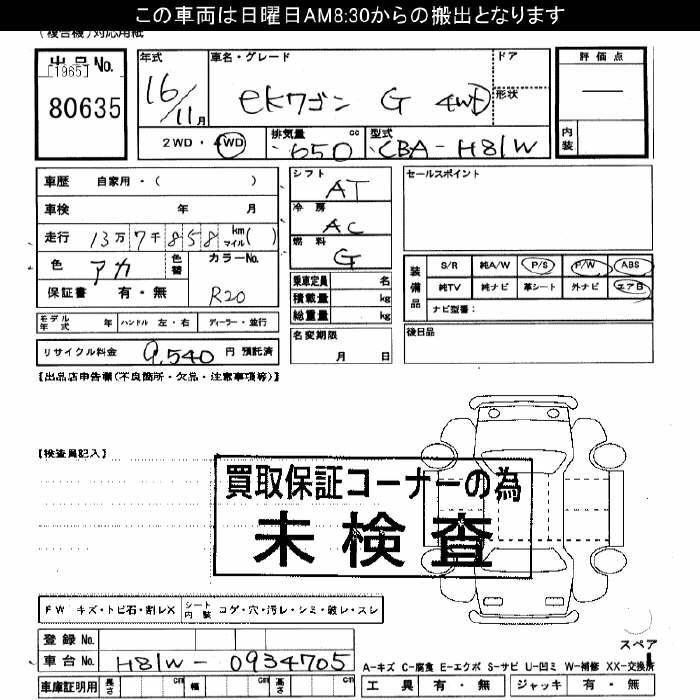 この車両は日曜日AM8:30からの搬出となります
(複合機)対応用紙
出品No. [1965] 80635
年式 16/11月
車名・グレード ekワゴン G 4WD
ドア
形状
2WD・4WD
排気量 650 cc
型式 CBA-H81W
評価点 —
内装
車歴 自家用・( )
車検 年 月
走行 13万7千858 km マイル( )
色 アカ 色替
カラーNo. R20
保証書 有・無
シフト AT
冷房 AC
燃料 G
乗車定員 名
積載量 kg
総重量 kg
セールスポイント
装備品
S/R 純A/W P/S P/W ABS
純TV 純ナビ 革シート 外ナビ エアB
ナビ型番:
モデル年式 年 ハンドル 左・右 ディーラー・並行
名変期限 月 日
後日品
リサイクル料金 9,540 円 預託済
【出品店申告欄(不良箇所・欠品・注意事項等)】
【検査員記入】
買取保証コーナーの為
未検査
FW キズ・トビ石・割レX シート内装 コゲ・穴・汚レ・シミ・破レ・スレ
登録No.
スペア
車台No. H81W-0934705
A-キズ C-腐食 E-エクボ S-サビ U-凹ミ W-補修 XX-交換済
車庫証明用 長さ cm 幅 cm 高さ cm
工具 有・無 ジャッキ 有・無